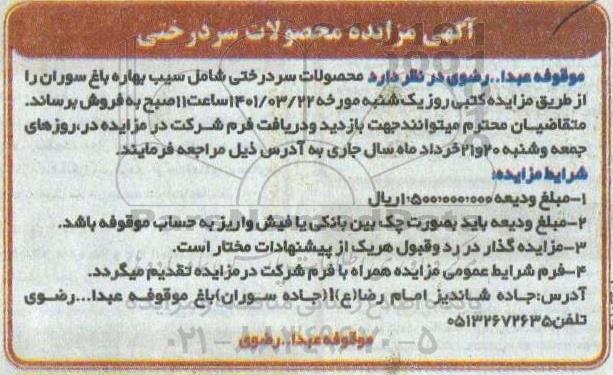 آگهی مزایده محصولات سردرختی
موقوفه عبدا..رضوی در نظر دارد محصولات سردرختی شامل سیب بهاره باغ سوران را
از طریق مزایده کتبی روز یک شنبه مورخه ۱۴۰۱/۰۳/۲۲ ساعت ۱۱ صبح به فروش برساند.
متقاضیان محترم میتوانند جهت بازدید ودریافت فرم شرکت در مزایده در،روزهای
جمعه وشنبه ۲۰و۲۱ خرداد ماه سال جاری به آدرس ذیل مراجعه فرمایند.
شرایط مزایده:
۱-مبلغ ودیعه ۱،۵۰۰،۰۰۰،۰۰۰ ریال
۲-مبلغ ودیعه باید بصورت چک بین بانکی یا فیش واریز به حساب موقوفه باشد.
۳-مزایده گذار در رد وقبول هریک از پیشنهادات مختار است.
۴-فرم شرایط عمومی مزایده همراه با فرم شرکت در مزایده تقدیم میگردد.
آدرس:جاده شاندیز امام رضا(ع)۱(جاده سوران)باغ موقوفه عبدا...رضوی
تلفن۰۵۱۳۲۶۷۲۶۳۵
موقوفه عبدا..رضوی